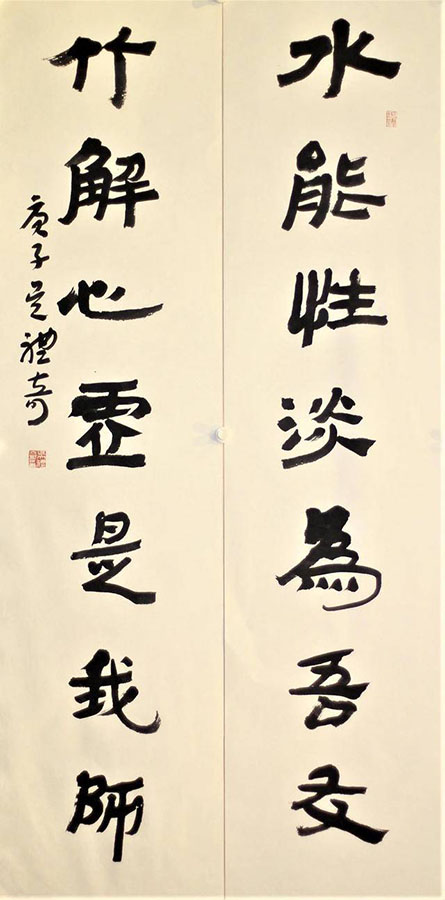 水能性淡為吾友
竹解心虛是我師
庚子吳禮奇